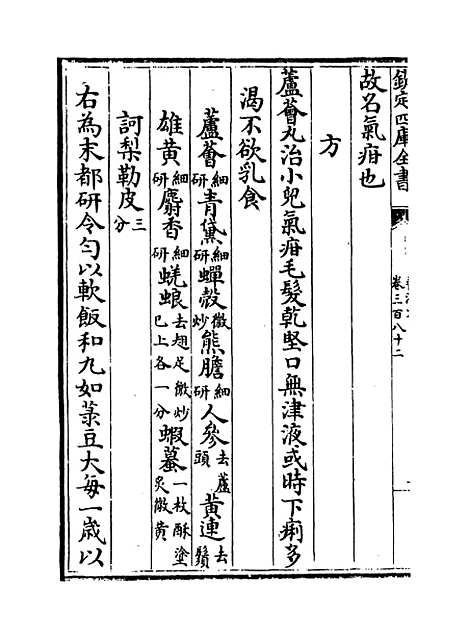 欽定四庫全書
卷三百八十二
故名氣疳也
方
蘆薈丸治小兒氣疳毛髮乾堅口無津液或時下痢多
渴不欲乳食
蘆薈細研青黛細研蟬殼微炒熊膽細研人參去蘆頭黃連去鬚
雄黃細研麝香細研蜣蜋去翅足微炒已上各一分蝦蟇一枚酥塗炙微黃
訶梨勒皮三分
右為末都研令勻以軟飯和丸如菉豆大每一歲以